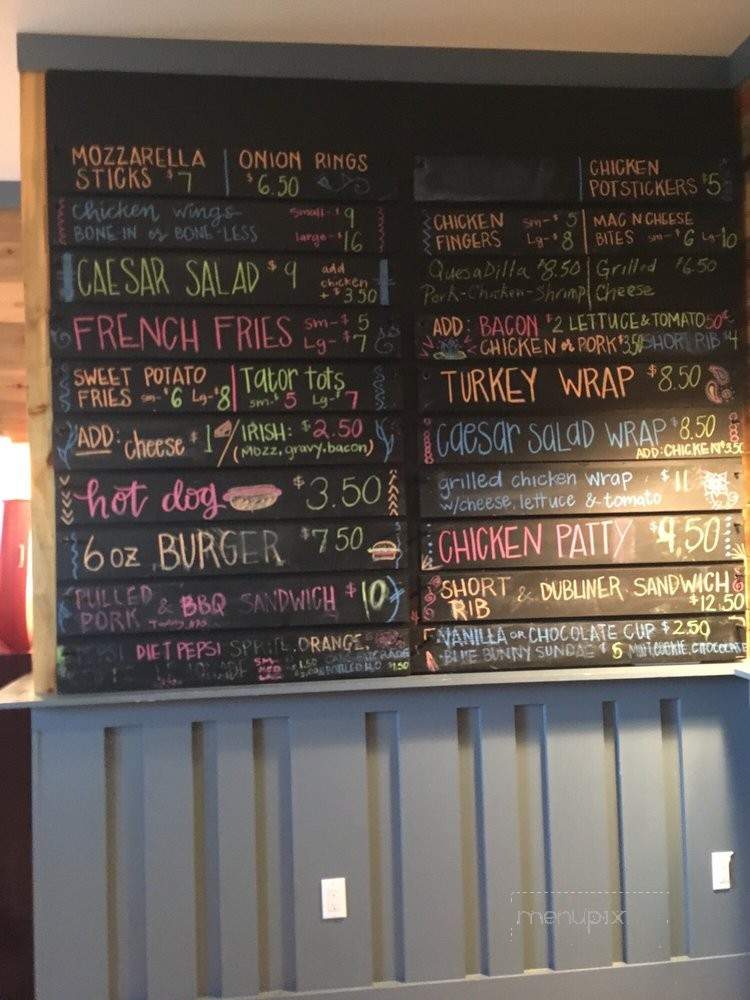 MOZZARELLA STICKS $7
ONION RINGS $6.50
chicken wings small-$9
BONE IN or BONE-LESS large-$16
CAESAR SALAD $9 add chicken +$3.50
FRENCH FRIES sm-$5 Lg-$7
SWEET POTATO FRIES sm-$6 Lg-$8
Tator tots sm-$5 Lg-$7
ADD: cheese $1
IRISH: $2.50
(Mozz, gravy, bacon)
hot dog $3.50
6 oz BURGER $7.50
PULLED PORK & BBQ SANDWICH $10
DIET PEPSI ORANGE
CHICKEN POTSTICKERS $5
CHICKEN FINGERS sm-$5 Lg-$8
MAC N CHEESE BITES sm-$6 Lg-10
Quesadilla $8.50
Pork-Chicken-Shrimp
Grilled Cheese $6.50
ADD: BACON $2 LETTUCE & TOMATO 50¢
CHICKEN or PORK $3.50 SHORT RIB $4
TURKEY WRAP $8.50
caesar salad WRAP $8.50
ADD: CHICKEN $3.50
grilled chicken wrap $11
w/cheese, lettuce & tomato
CHICKEN PATTY $4.50
SHORT RIB & DUBLINER SANDWICH $12.50
VANILLA or CHOCOLATE CUP $2.50
BLUE BUNNY SUNDAE $5
menupix